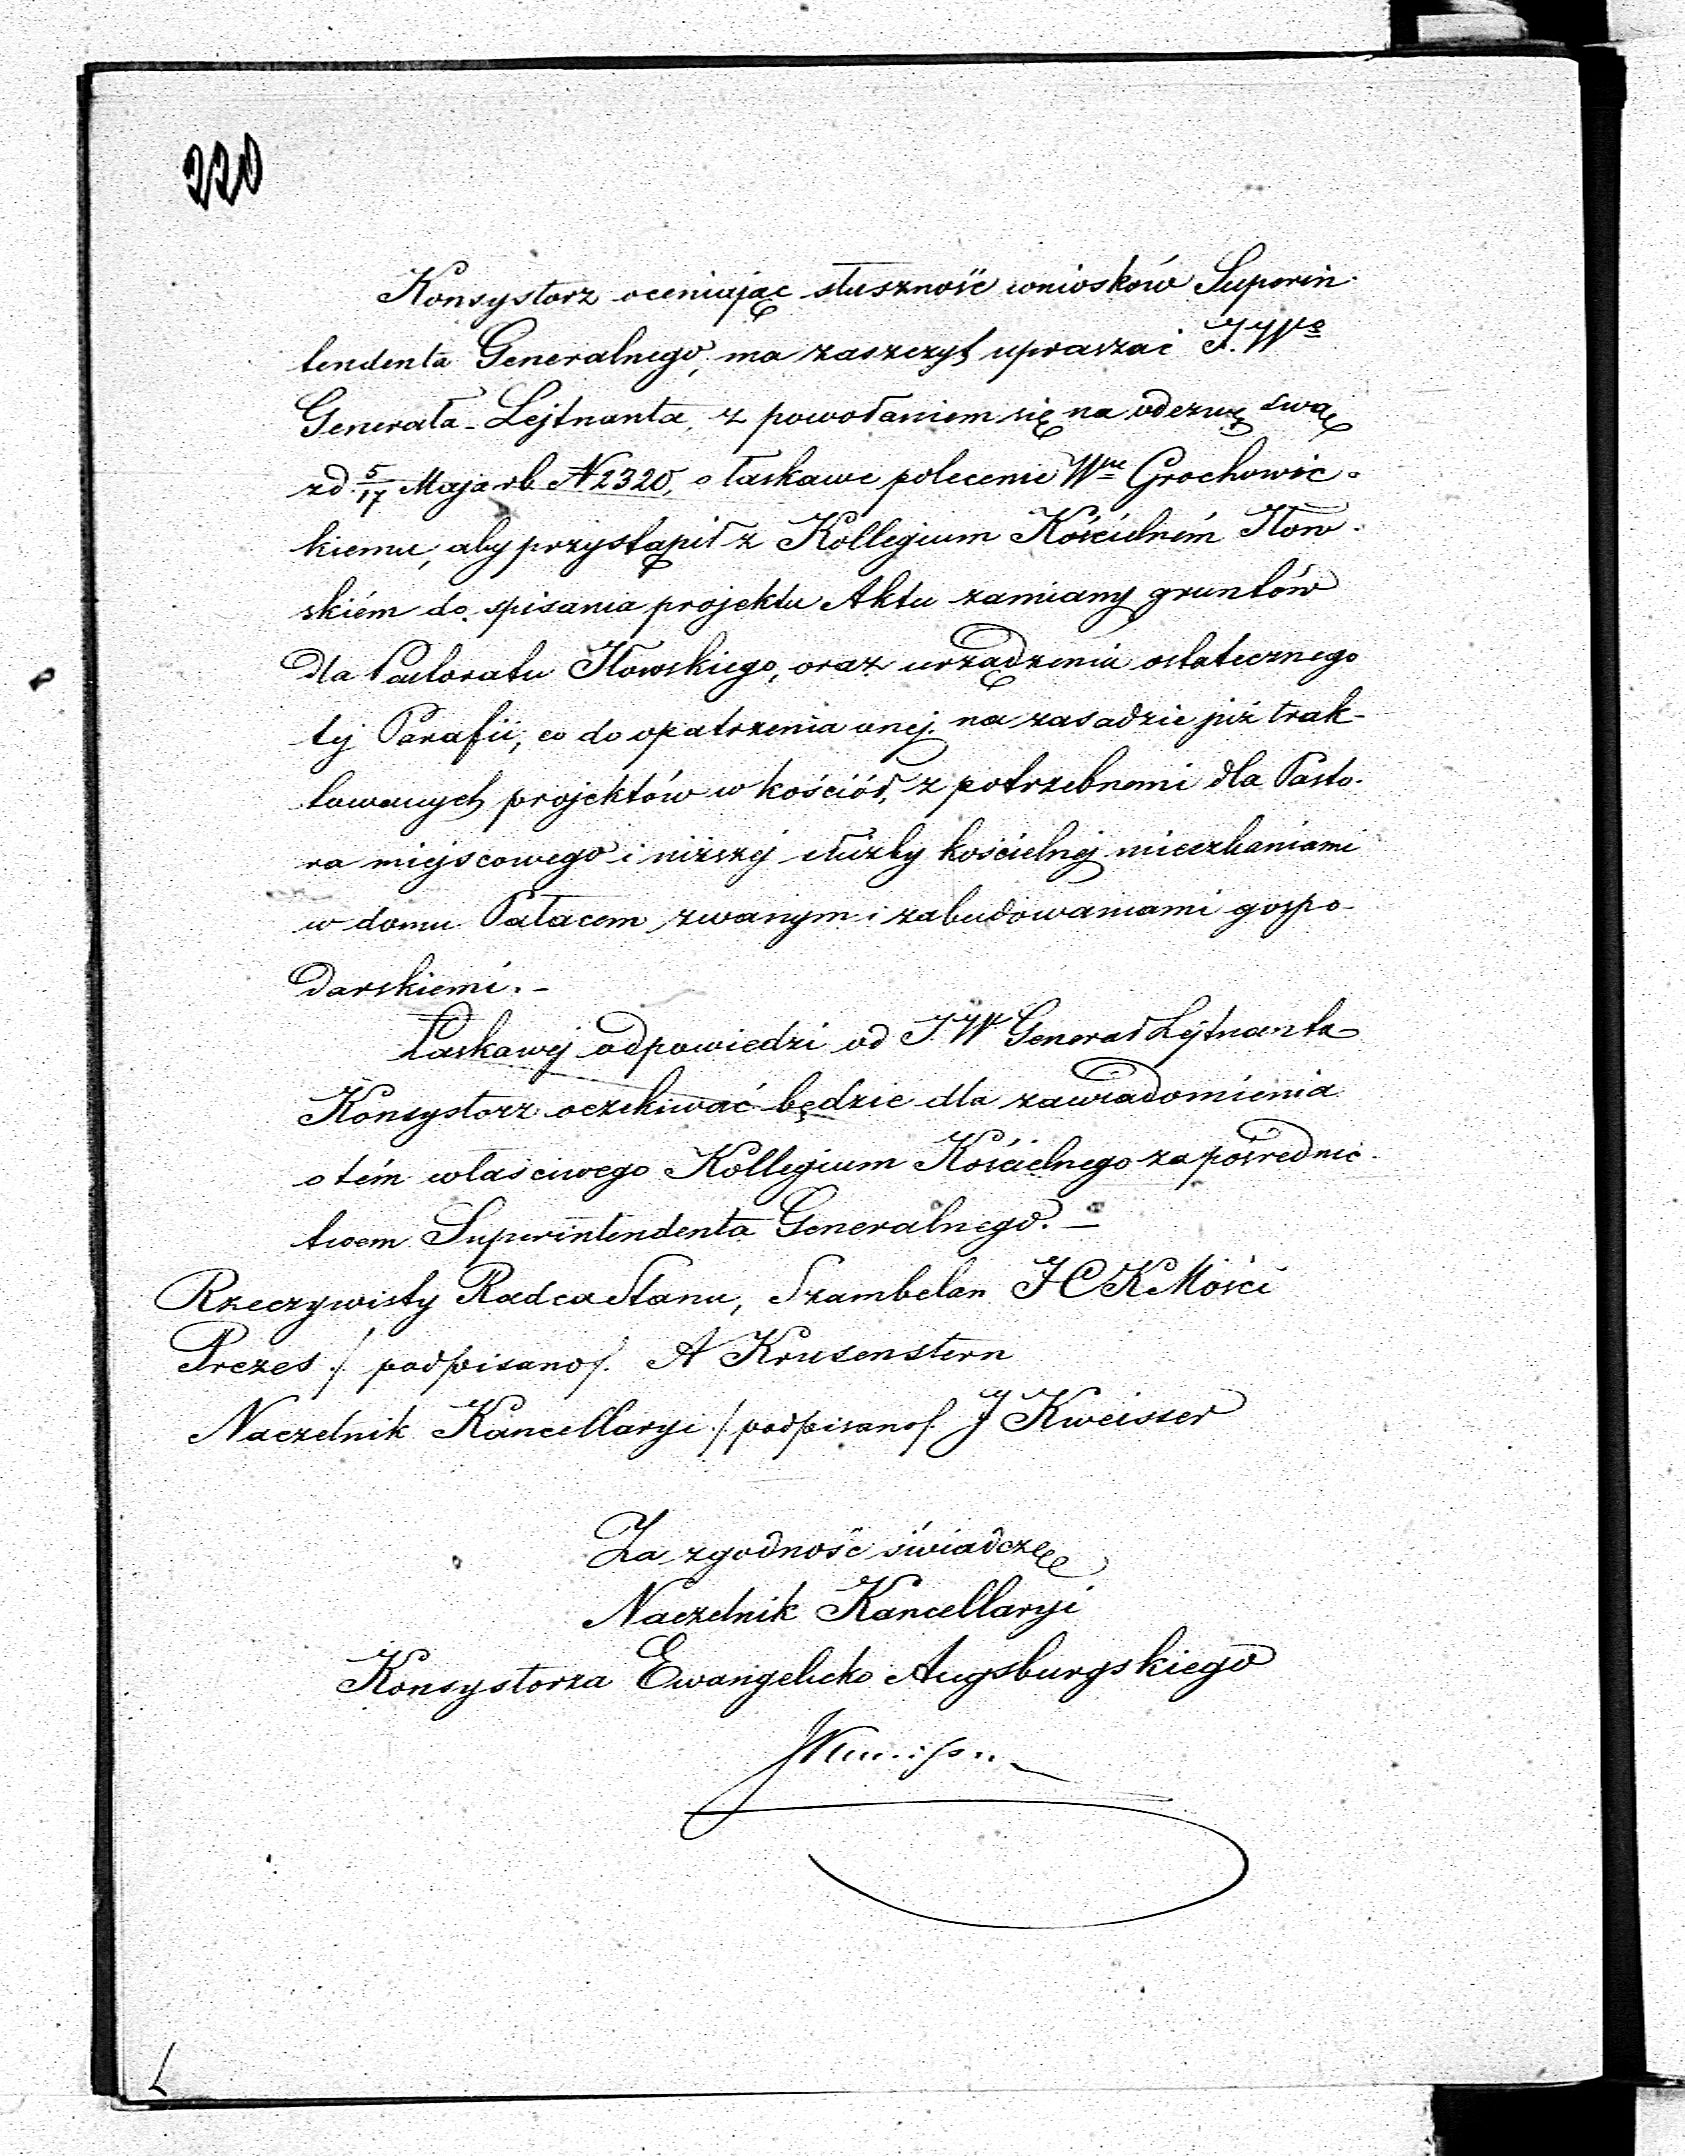 220
Konsystorz oceniając słuszność wniosków Superin-
tendenta Generalnego, ma zaszczyt upraszać J.Wgo
Generała-Lejtnanta, z powołaniem się na odezwę swą
z d. 5/17 Maja rb N 2320, o łaskawe polecenie Wmu Grochowic-
kiemu, aby przystąpił z Kollegium Kościelném Iłow-
skiém do spisania projektu Aktu zamiany gruntów
dla Pastoratu Iłowskiego, oraz urządzenia ostatecznego
tej Parafii, co do opatrzenia onej na zasadzie już trak-
towanych projektów w kościół, z potrzebnemi dla Pasto-
ra miejscowego i niższej służby kościelnej mieszkaniami
w domu Pałacem zwanym i zabudowaniami gospo-
darskiemi.-
Łaskawej odpowiedzi od J.W. Generał Lejtnanta
Konsystorz oczekiwać będzie dla zawiadomienia
o tém właściwego Kollegium Kościelnego za pośrednic-
twem Superintendenta Generalnego. -
Rzeczywisty Radca Stanu, Szambelan JCKMości
Prezes /podpisano/. A Krusenstern
Naczelnik Kancellaryi /podpisano/. J Kweisser
Za zgodność świadczę
Naczelnik Kancellaryi
Konsystorza Ewangelicko Augsburgskiego